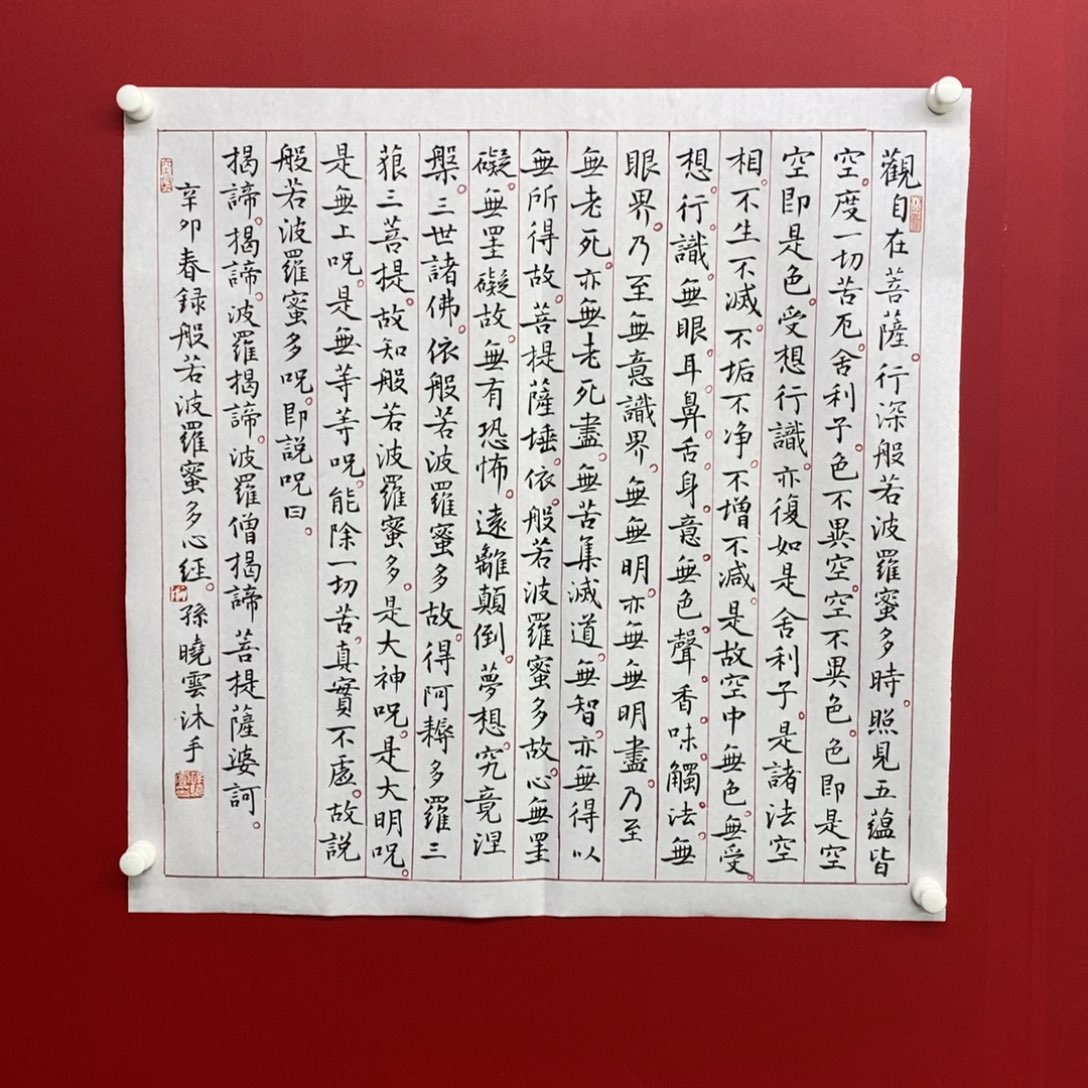 觀自在菩薩。行深般若波羅蜜多時。照見五蘊皆
空。度一切苦厄。舍利子。色不異空。空不異色。色即是空
空即是色。受想行識。亦復如是舍利子。是諸法空
相。不生不滅。不垢不净。不增不减。是故空中無色。無受。
想。行。識。無眼耳鼻舌身意。無色。聲。香。味。觸。法。無
眼界。乃至無意識界。無無明。亦無無明盡。乃至
無老死。亦無老死盡。無苦集滅道。無智。亦無得以
無所得故。菩提薩埵。依。般若波羅蜜多故。心無罣
礙。無罣礙故。無有恐怖。遠離顛倒。夢想。究竟涅
槃。三世諸佛。依般若波羅蜜多故。得阿耨多羅三
藐三菩提。故知般若波羅蜜多。是大神呪。是大明呪。
是無上呪。是無等等呪。能除一切苦。真實不虛。故説
般若波羅蜜多呪。即説呪曰。
揭諦。揭諦。波羅揭諦。波羅僧揭諦菩提薩婆訶。
辛卯春録般若波羅蜜多心経。孫曉雲沐手